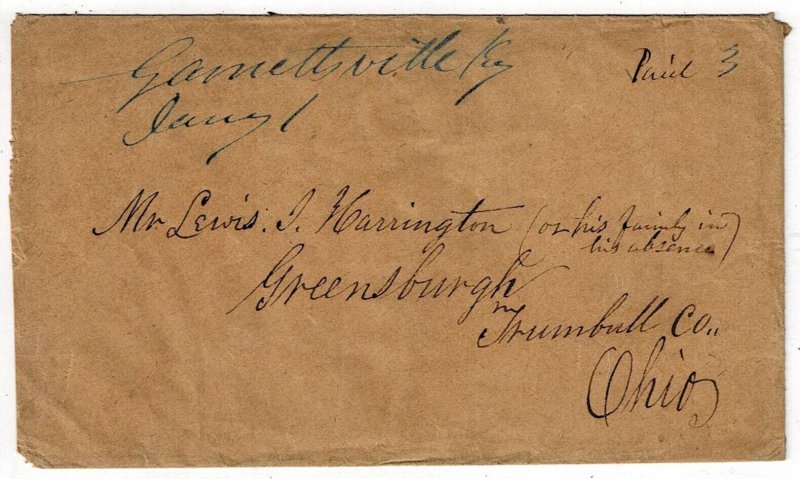 Garnettsville Ky
Jany 1
Paid 3
Mr Lewis. J. Harrington (or his family in
his absence)
Greensburgh
Trumbull Co.,
Ohio